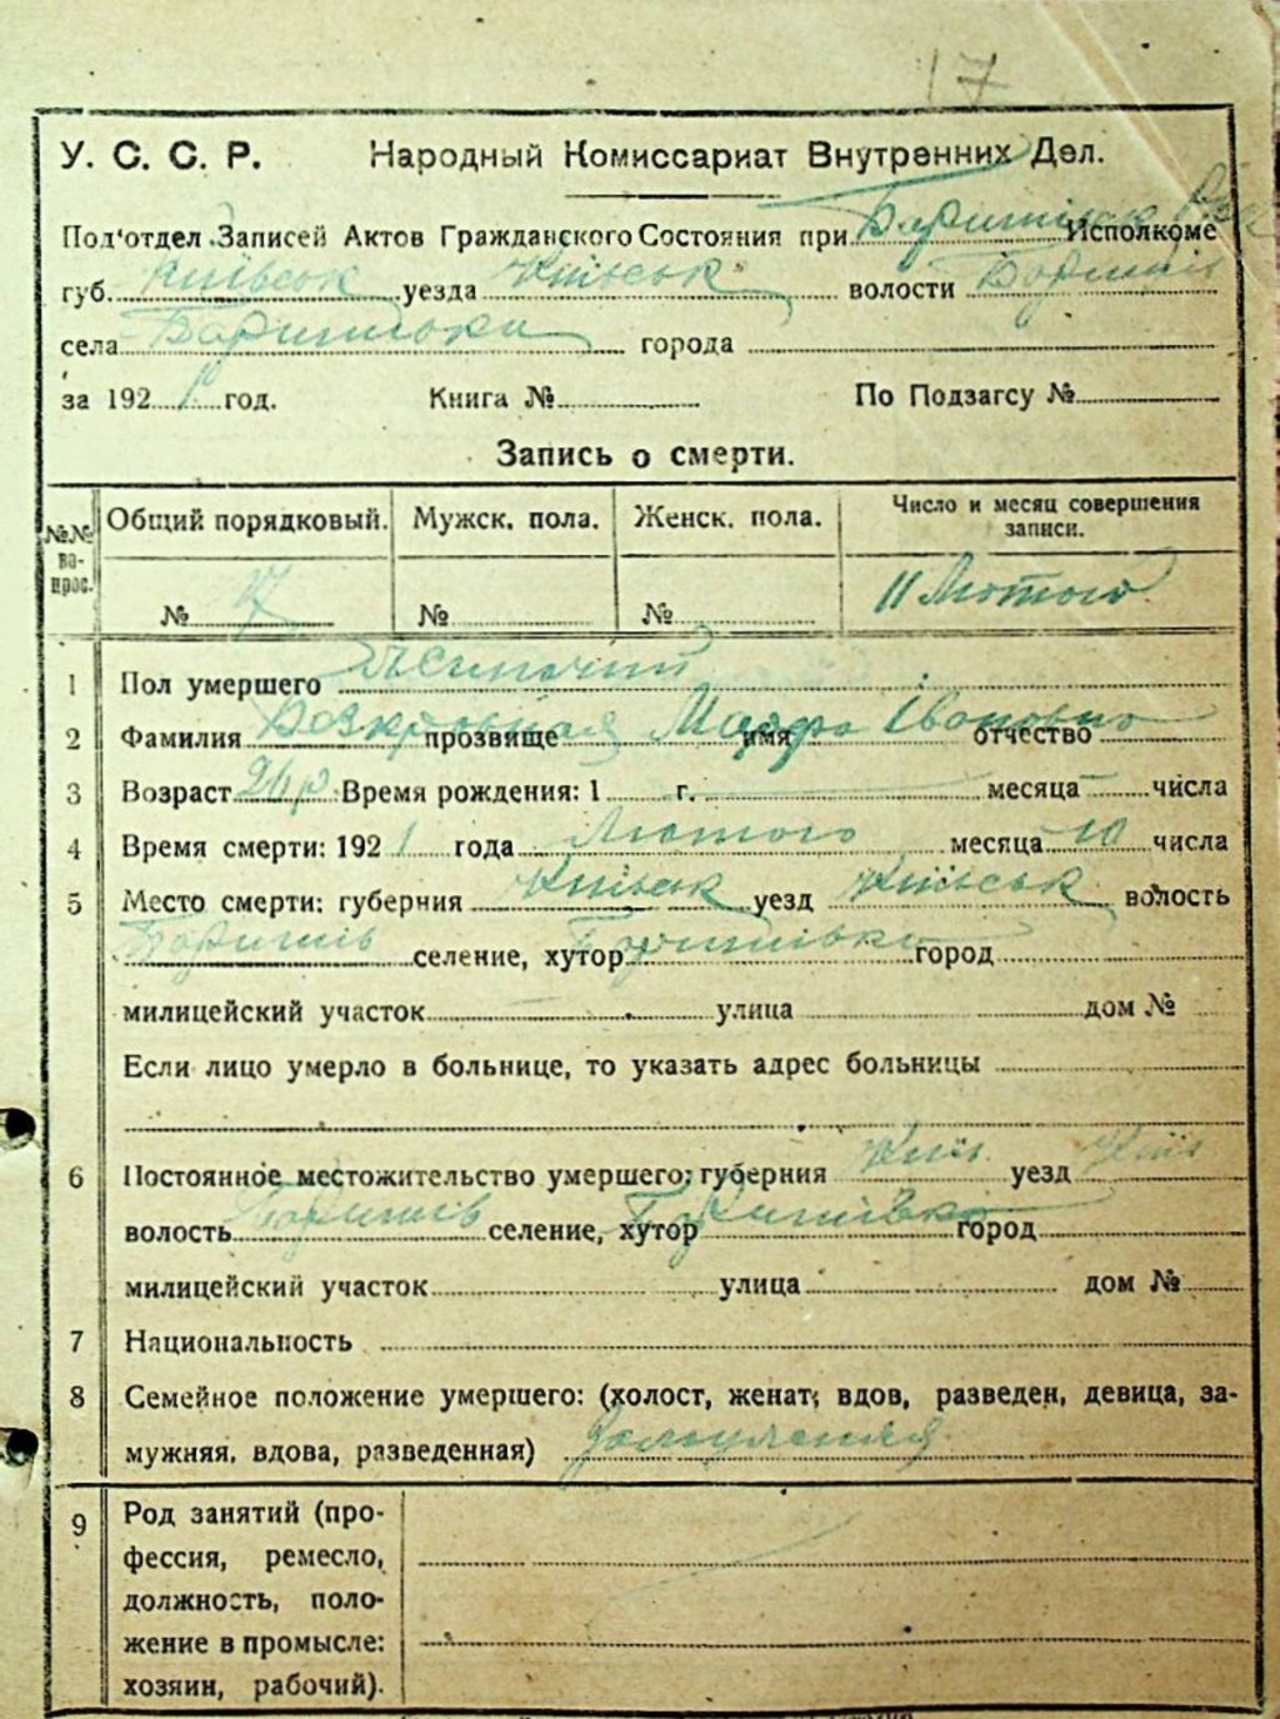 17
У. С. С. Р. Народный Комиссариат Внутренних Дел.
Под'отдел Записей Актов Гражданского Состояния при Исполкоме
губ. Київськ уезда Київськ волости Баришів
села Баришівки города
за 1921 р год. Книга № По Подзагсу №
Запись о смерти.
№№ вопрос. Общий порядковый. Мужск. пола. Женск. пола. Число и месяц совершения записи.
№ 17 № № 11 Лютого
1 Пол умершего Жіночий
2 Фамилия Безкровная прозвище Марфа имя Івановна отчество
3 Возраст Время рождения: 1 г. месяца числа
4 Время смерти: 1921 года Лютого месяца 10 числа
5 Место смерти: губерния Київськ уезд Київськ волость
Баришів селение, хутор Баришівка город
милицейский участок улица дом №
Если лицо умерло в больнице, то указать адрес больницы
6 Постоянное местожительство умершего: губерния Київ. уезд Київ
волость Баришів селение, хутор Баришівка город
милицейский участок улица дом №
7 Национальность
8 Семейное положение умершего: (холост, женат, вдов, разведен, девица, за-
мужняя, вдова, разведенная)
9 Род занятий (про-
фессия, ремесло,
должность, поло-
жение в промысле:
хозяин, рабочий).